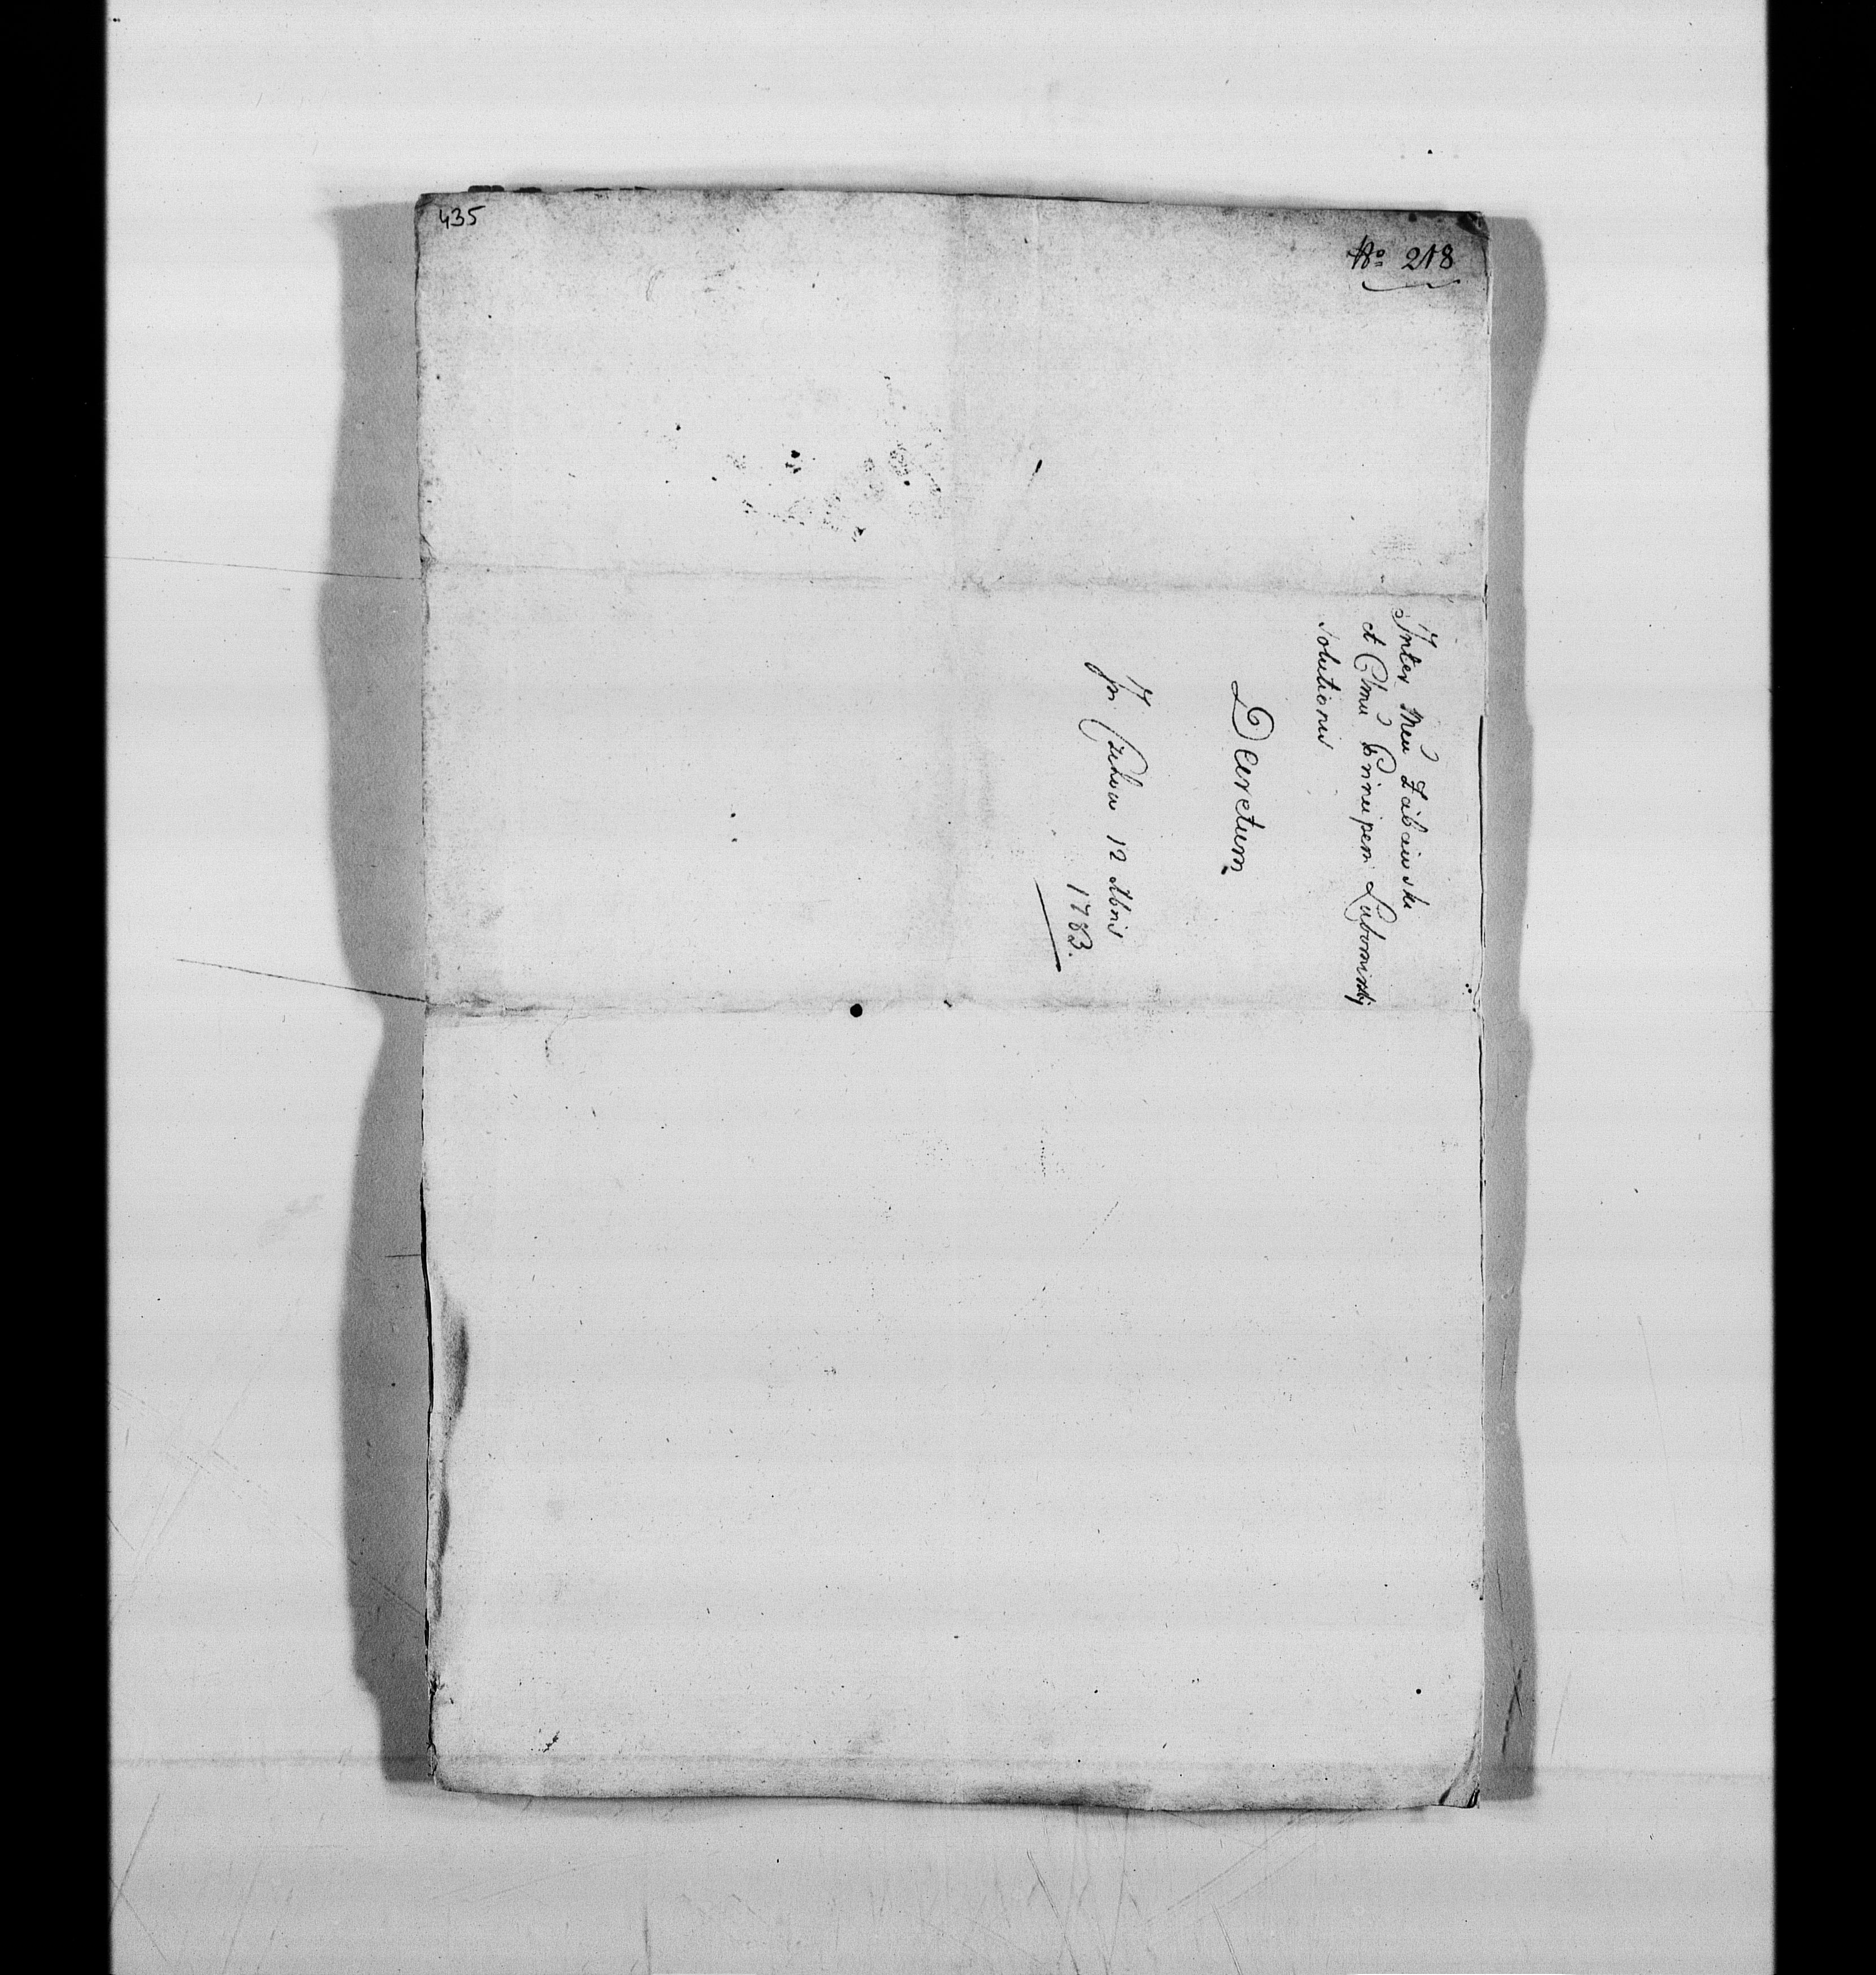 435
No 218
Inter Mcu Zabawski
et Clmu Principem Lubomirskj
Solutionis
Decretum
In 12 Abris
1783.